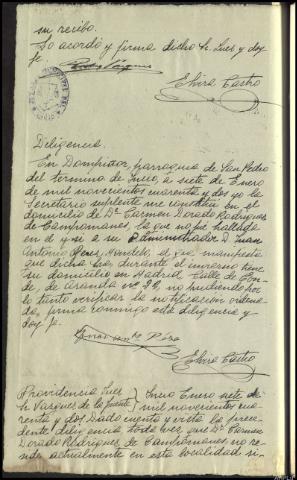 su recibo.
Lo acordó y firma dicho Sr. Juez y doy
fe.
Elvira Castro
Diligencia.
En Domfreitor, parroquia de San Pedro
del termino de Incio, a siete de Enero
de mil novecientos cuarenta y dos yo la
Secretario suplente me constituí en el
domicilio de Dª Carmen Dorado Rodríguez
de Campomanes, la que no fue hallada
en él y si a su administrador D. Juan
Antonio Pérez, el que manifesta
que dicha Sra. durante el invierno tiene
su domicilio en Madrid Calle de Con-
de, de Aranda nº 22, no pudiendo por lo
tanto verificar la notificación ordena-
da, firma conmigo esta diligencia y
doy fe.
Elvira Castro
Providencia Juez
Sr. Vazquez de la Fuente
Incio Enero siete de
mil novecientos cua-
renta y dos. Dada cuenta y vista la prece-
dente diligencia toda vez que Dª Carmen
Dorado Rodríguez de Campomanes no re-
side actualmente en esta localidad si-